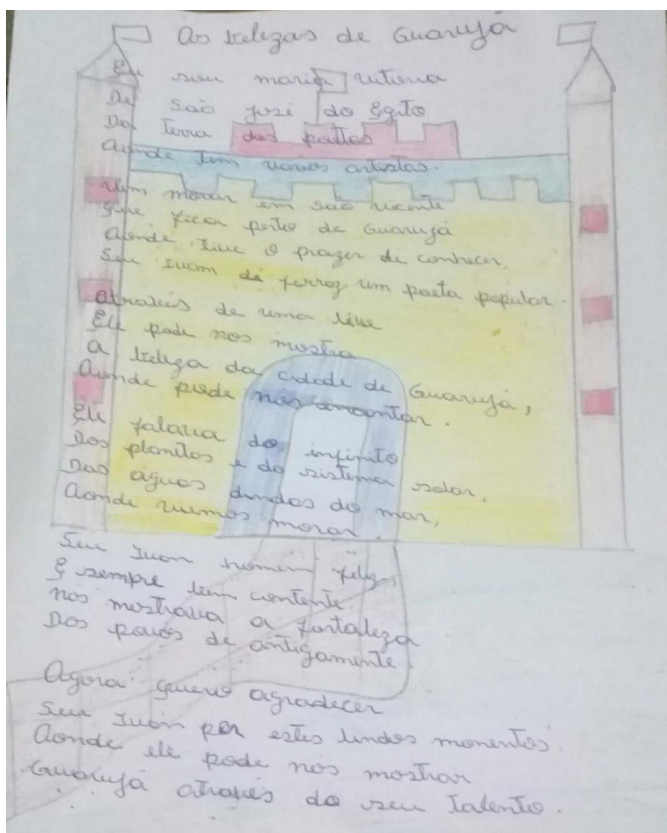 As belezas de Guarujá
Eu sou maria vitoria
De são josé do Egito
Da Terra dos poetas
Aonde tem varios artistas.
Vim morar em são vicente
Que ficar perto de Guarujá
Aonde tive o prazer de conhecer,
Seu Ivan de ferroz um poeta popular.
Através de uma live
Ele pode nos mostra
A beleza da cidade de Guarujá,
Aonde pude nos encontar.
Ele falava do infinito
Dos planitos e do sistema solar,
Das águas lindas do mar,
Aonde viemos morar.
Seu Ivan homem feliz,
E sempre bem contente.
nos mostrava a fortaleza
Dos povos de antigamente.
Agora quero agradecer
Seu Ivan por estes lindos momentos.
Aonde ele pode nos mostrar
Guarujá através do seu Talento.